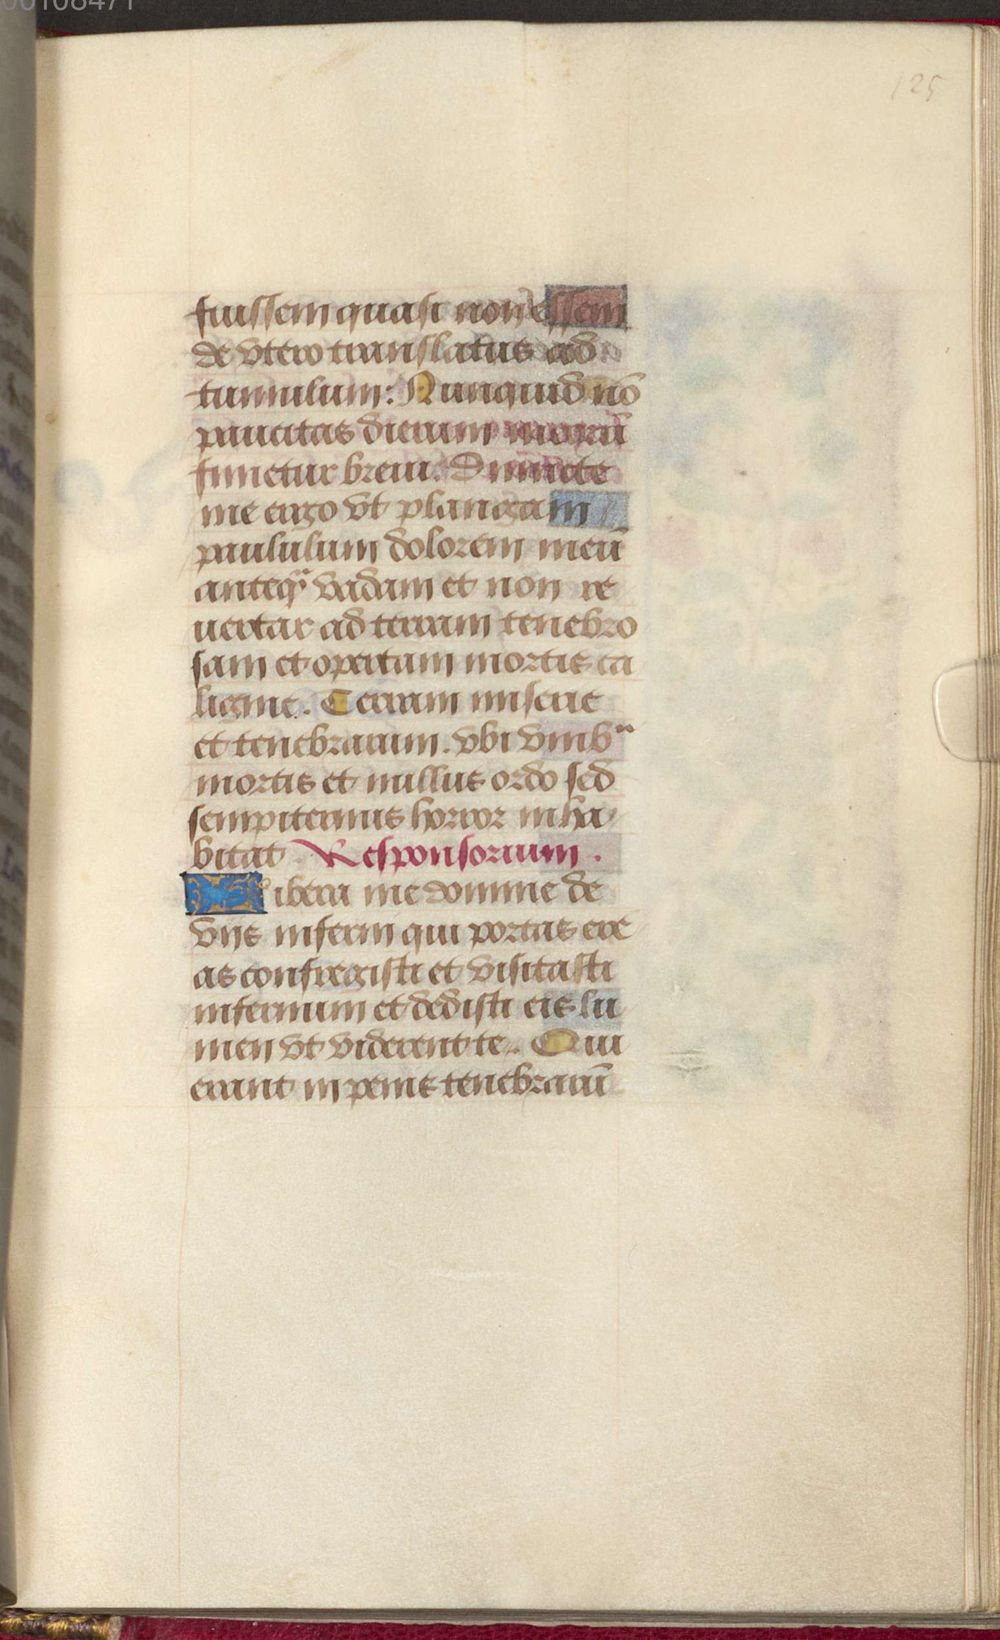 00108471
125
fuissem quasi non essem
de vtero translatus ad
tumulum: Nunquid nō
paucitas dierum meorū
finietur breui. Dimitte
me ergo vt plangam
paululum dolorem meū
anteqᷓ vadam et non re
uertar ad terram tenebro
sam et opertam mortis ca
ligine. Terram miserie
et tenebrarum. vbi vmbᵃ
mortis et nullus ordo sed
sempiternus horror inha
bitat. Responsorium.
Libera me domine de
viis inferni qui portas ere
as confregisti et visitasti
infernum et dedisti eis lu
men vt viderent te. Qui
erant in penis tenebrarū